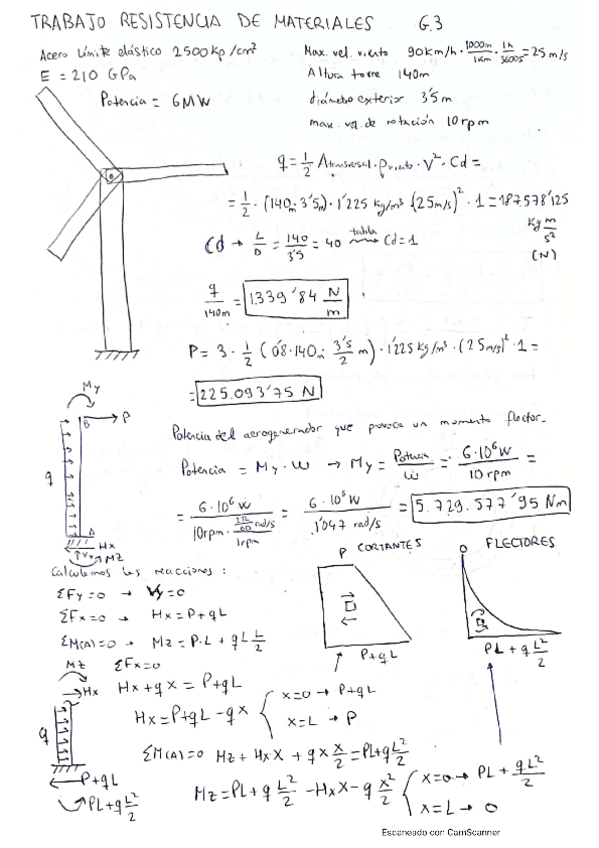 TRABAJO RESISTENCIA DE MATERIALES G.3
Acero Límite elástico 2500 kp/cm²
E = 210 GPa
Potencia = 6MW
Max. vel. viento 90km/h · 1000m/1km · 1h/3600s = 25 m/s
Altura torre 140m
diámetro exterior 3'5 m
max. vel. de rotación 10 rpm
q = 1/2 Atransversal · ρviento · V² · Cd =
= 1/2 · (140m · 3'5m) · 1'225 kg/m³ · (25m/s)² · 1 = 187578'125
kg m/s²
(N)
Cd → L/D = 140/3'5 = 40 tabla Cd = 1
q/140m = 1.339'84 N/m
P = 3 · 1/2 (0'8 · 140m · 3'5/2 m) · 1'225 kg/m³ · (25m/s)² · 1 =
= 225.093'75 N
My
B
P
q
A
Hx
Vy
Mz
Potencia del aerogenerador que provoca un momento flector.
Potencia = My · ω → My = Potencia/ω = 6·10⁶W/10 rpm =
= 6·10⁶ W / 10rpm · 2π/60 rad/s / 1rpm = 6·10⁶ W / 1'047 rad/s = 5.729.577'95 Nm
Calculamos las reacciones:
ΣFy = 0 → Vy = 0
ΣFx = 0 → Hx = P + qL
ΣM(A) = 0 → Mz = P·L + qL L/2
P CORTANTES
P + qL
0 FLECTORES
PL + q L²/2
Mz
Hx
q
P + qL
PL + q L²/2
ΣFx = 0
Hx + qx = P + qL
Hx = P + qL - qx { x = 0 → P + qL
x = L → P
ΣM(A) = 0 Mz + Hx X + qx x/2 = PL + q L²/2
Mz = PL + q L²/2 - Hx X - q x²/2 { x = 0 → PL + qL²/2
x = L → 0
Escaneado con CamScanner